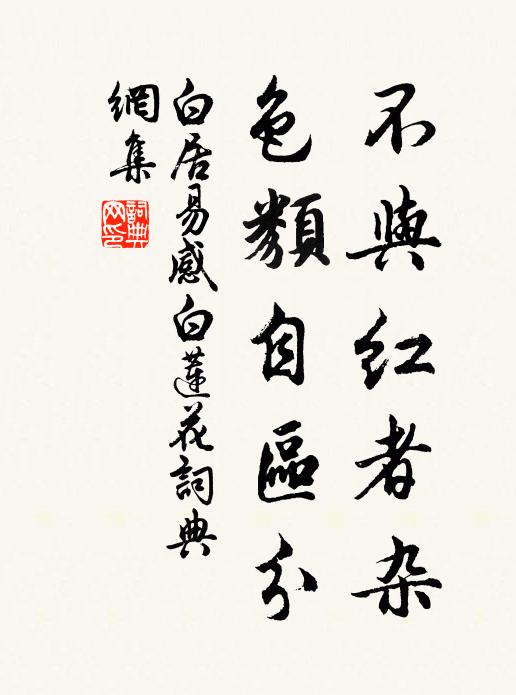 不與红者杂
色類自區分
白居易感白蓮花詞典
網集
詞典网印